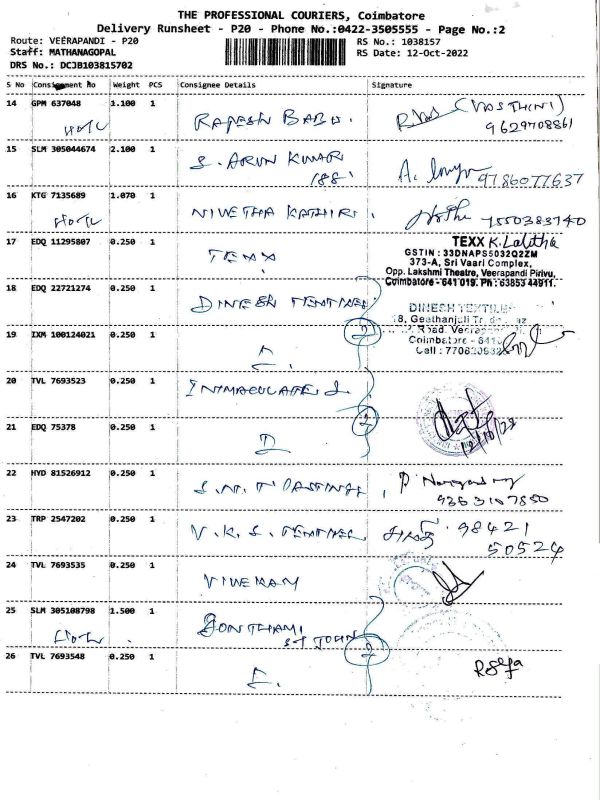 THE PROFESSIONAL COURIERS, Coimbatore
Delivery Runsheet - P20 - Phone No.:0422-3505555 - Page No.:2
Route: VEERAPANDI - P20
RS No.: 1038157
Staff: MATHANAGOPAL
RS Date: 12-Oct-2022
DRS No.: DCJB103815702
S No Consignment No Weight PCS Consignee Details Signature
14 GPM 637048 1.100 1
RAJESH BABU.
(VASTHINI)
9629708861
15 SLM 305044674 2.100 1
S. ARUN KUMAR
188
9786077637
16 KTG 7135689 1.070 1
NIVETHA KATHIRI.
7550383740
17 EDQ 11295807 0.250 1
TEXX
TEXX K. Lalitha
GSTIN : 33DNAPS5032Q2ZM
373-A, Sri Vaari Complex,
Opp. Lakshmi Theatre, Veerapandi Pirivu,
Coimbatore - 641 019. Ph : 63853 44911.
18 EDQ 22721274 0.250 1
DINESH TEXTILES
DINESH TEXTILE
18, Geethanjali
Road, Veerapandi
Coimbatore - 641
Cell : 770820932
19 IXM 100124021 0.250 1
2
20 TVL 7693523 0.250 1
INMACULATE J.
21 EDQ 75378 0.250 1
2
12/10/22
22 HYD 81526912 0.250 1
9363107850
23 TRP 2547202 0.250 1
V.K.S. TEXTILES
98421
50524
24 TVL 7693535 0.250 1
VIVEKAM
25 SLM 305108798 1.500 1
ST JOHN
2
26 TVL 7693548 0.250 1